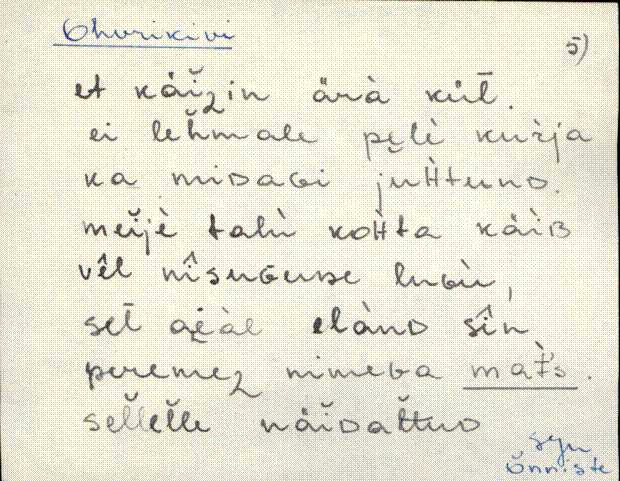 Ohvrikivi
5)
et käiʒin ärà küt̄.
ei lehmale pεlè kurja
ka miDaGi juHtunD.
meijè talù koHta käiB
vêl nîsuGuse luGù,
set̄ aεàl elànD sîn
peremeʒ nimeGa mat̀'s.
sellelle näiDattuD
syn
Õnniste